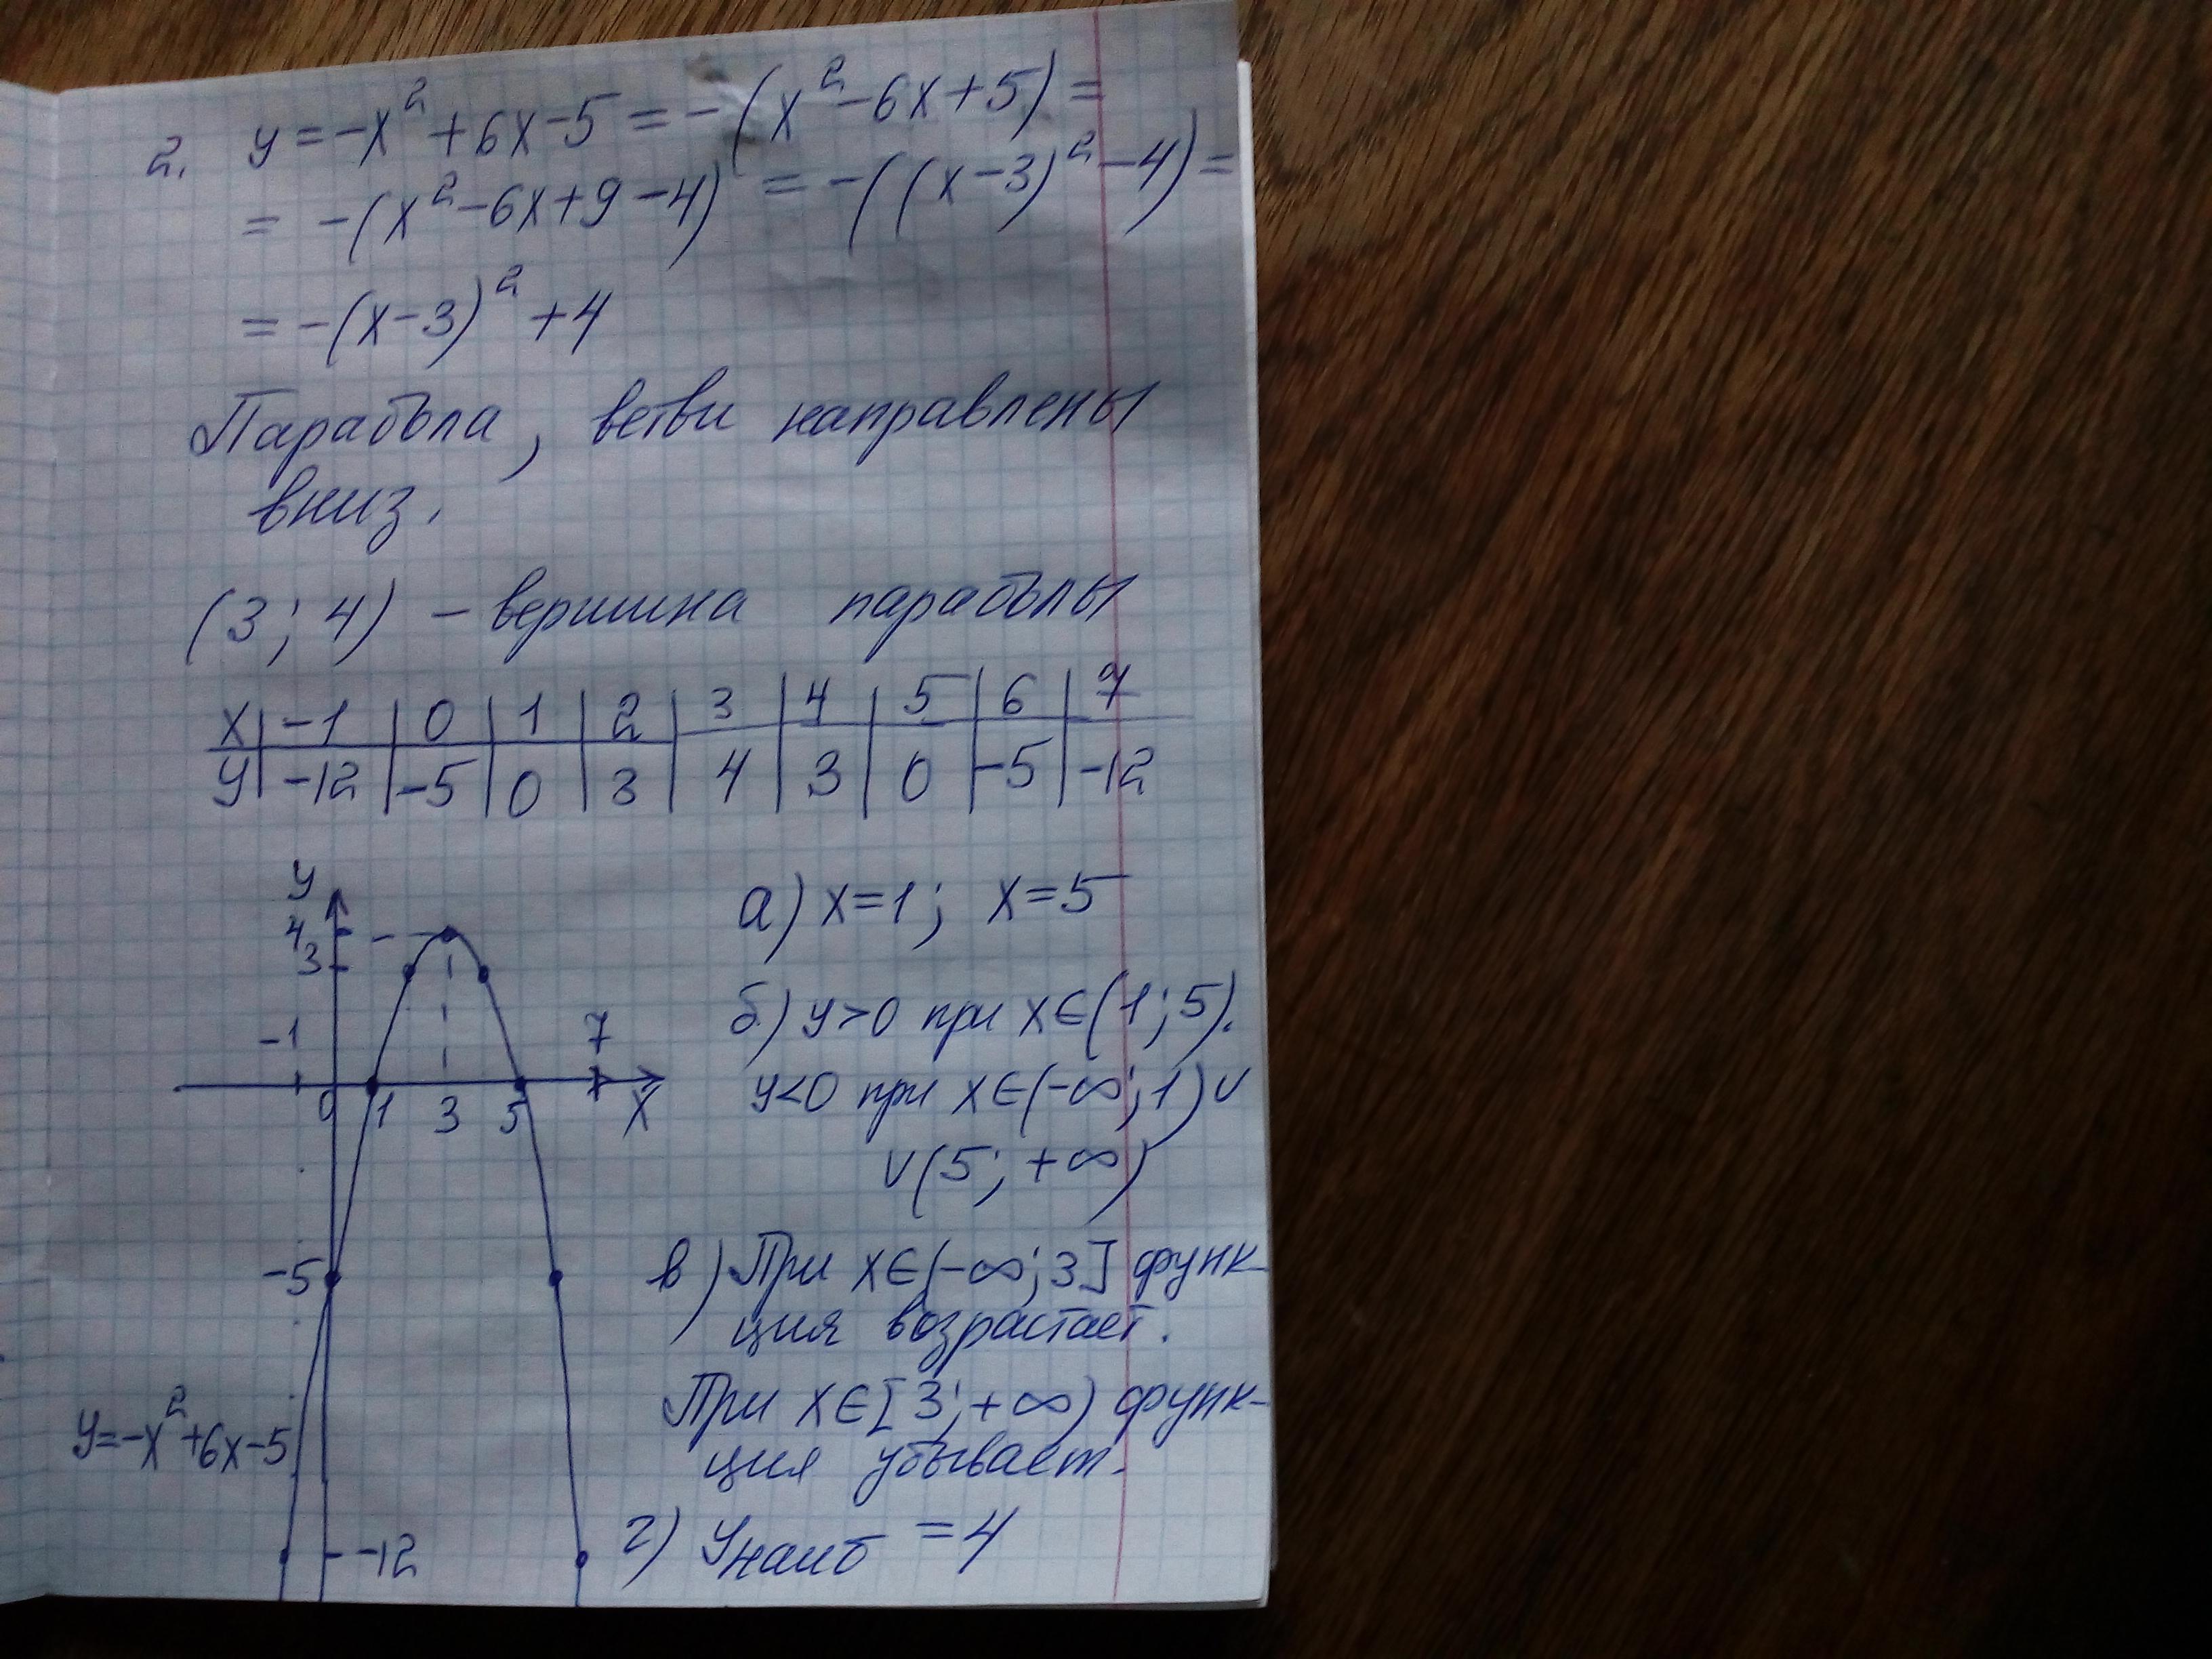 2. y=-x²+6x-5=-(x²-6x+5)=
=-(x²-6x+9-4)=-((x-3)²-4)=
=-(x-3)²+4
Парабола, ветви направлены
вниз.
(3; 4) - вершина параболы
x | -1 | 0 | 1 | 2 | 3 | 4 | 5 | 6 | 7
y | -12 | -5 | 0 | 3 | 4 | 3 | 0 | -5 | -12
y
4
3
-1
7
0
1
3
5
x
-5
y=-x²+6x-5
-12
а) x=1; x=5
б) y>0 при x∈(1;5).
y<0 при x∈(-∞;1)∪
∪(5;+∞)
в) При x∈(-∞;3] функ-
ция возрастает.
При x∈[3;+∞) функ-
ция убывает.
г) yнаиб =4